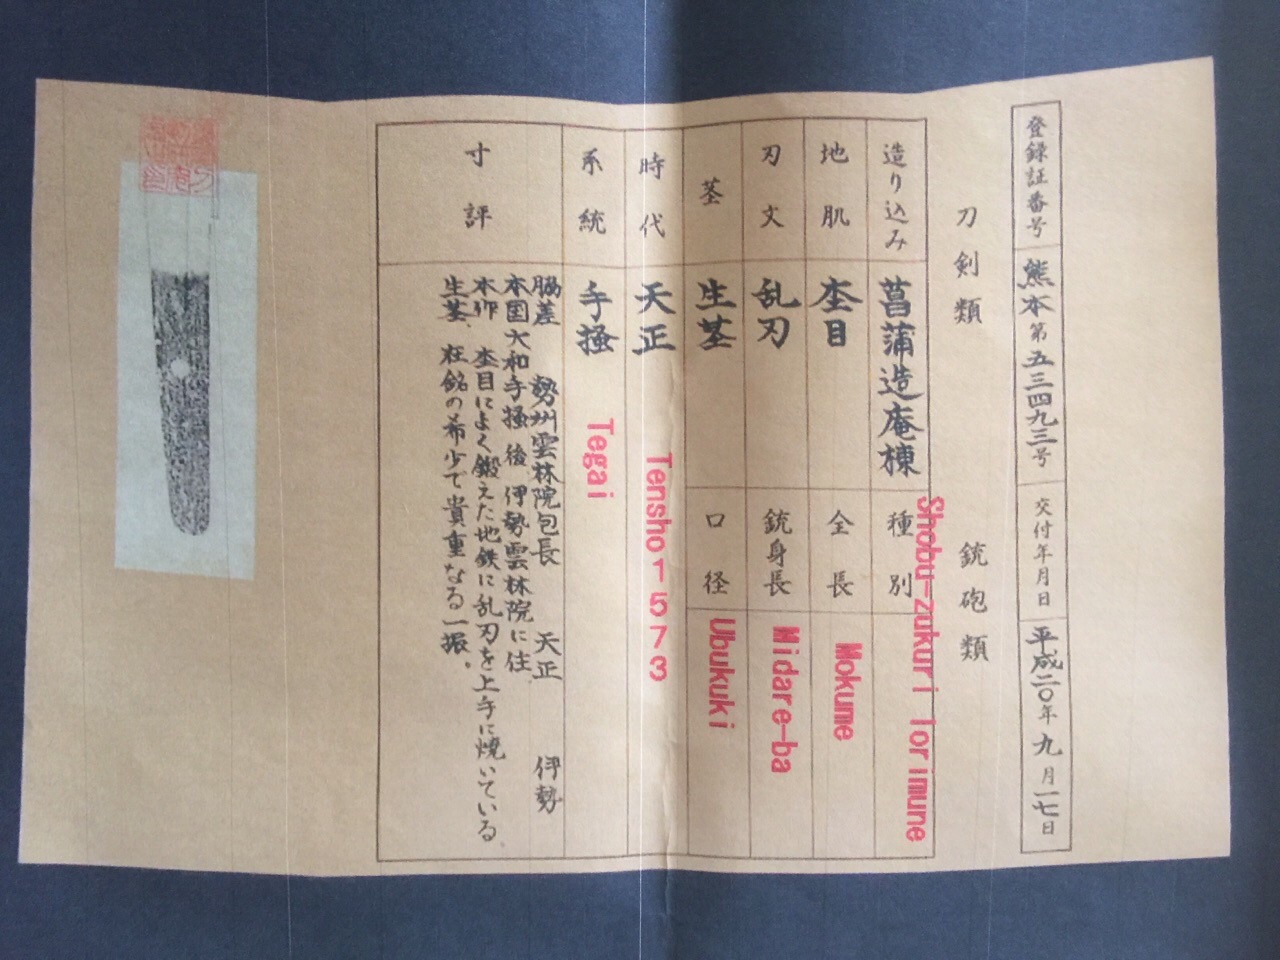 登録証番号 熊本第五三四九三号 交付年月日 平成二〇年九月一七日
刀剣類 銃砲類
造り込み 菖蒲造庵棟 種別
Shobu-zukuri Iorimune
地肌 杢目 全長
Mokume
刃文 乱刃 銃身長
Midare-ba
茎 生茎 口径
Ubukuki
時代 天正
Tensho1573
系統 手掻
Tegai
寸評
脇差 勢州雲林院包長 天正 伊勢
本国大和手掻後、伊勢雲林院に住
本作 杢目によく鍛えた地鉄に乱刃を上手に焼いている
生茎、在銘の希少で貴重なる一振。